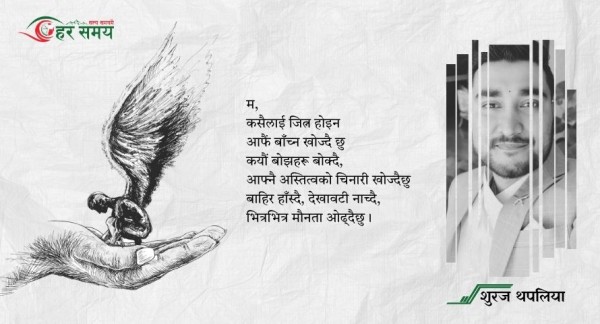 सत्य समाचार
हर समय
म,
कसैलाई जित्न होइन
आफैं बाँच्न खोज्दै छु
कयौं बोझहरू बोक्दै,
आफ्नै अस्तित्वको चिनारी खोज्दैछु
बाहिर हाँस्दै, देखावटी नाच्दै,
भित्रभित्र मौनता ओढ्दैछु ।
शुरज थपलिया